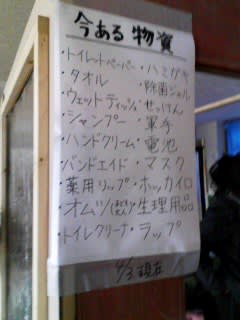 今ある物資
・トイレットペーパー ・ハミガキ
・タオル ・除菌ジェル
・ウェットティッシュ ・せっけん
・シャンプー ・軍手
・ハンドクリーム ・電池
・バンドエイド ・マスク
・薬用リップ ・ホッカイロ
・オムツ ・生理用品
・トイレクリーナ ・ラップ
4/3 現在